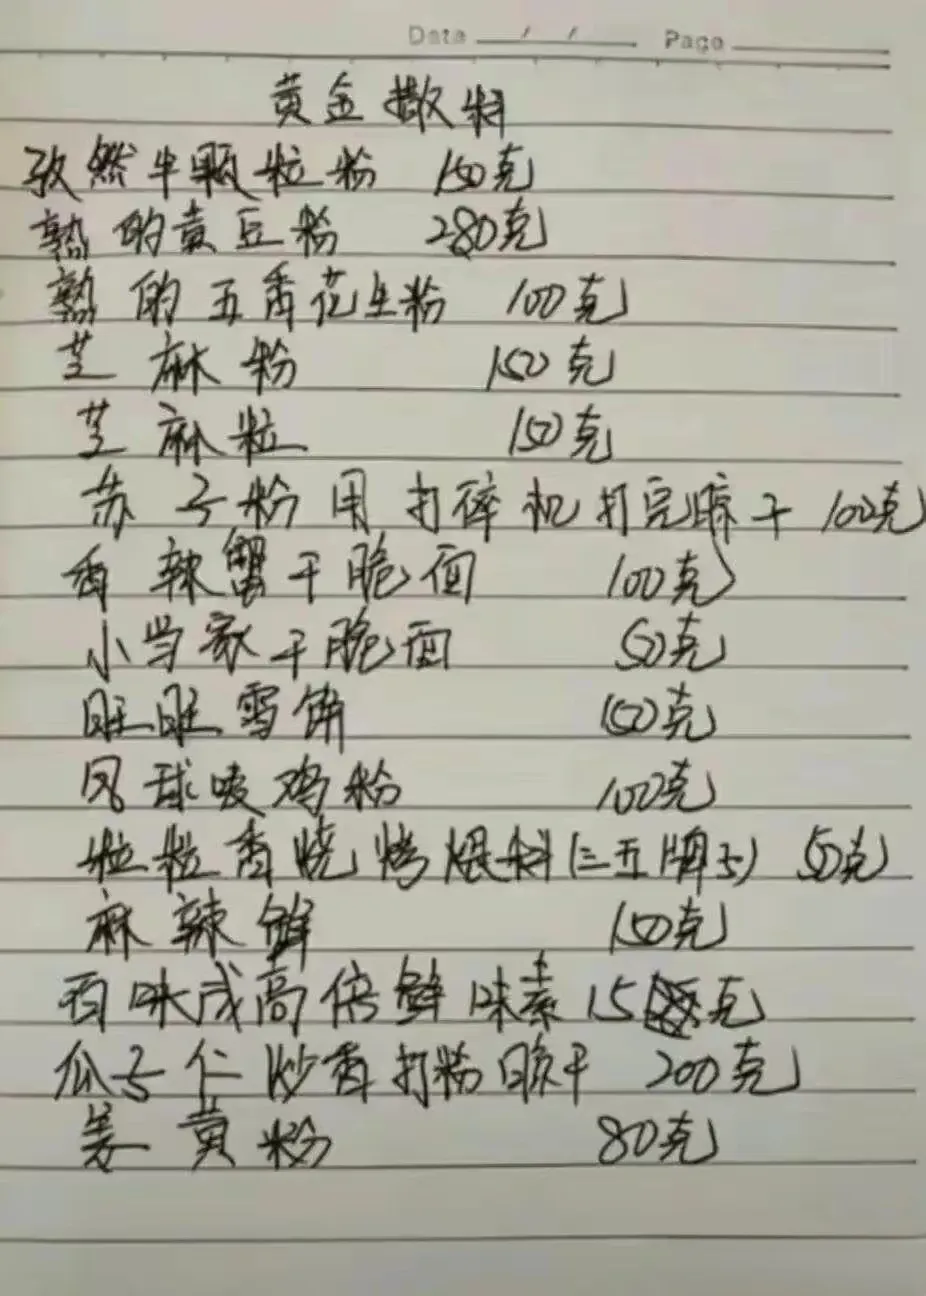 Date / / Page
黄金撒料
孜然半颗粒粉 150克
熟的黄豆粉 280克
熟的五香花生粉 100克
芝麻粉 150克
芝麻粒 150克
苏子粉用打碎机打完晾干 100克
香辣蟹干脆面 100克
小当家干脆面 50克
旺旺雪饼 150克
风球唛鸡粉 100克
粒粒香烧烤煨料(三五牌子) 50克
麻辣鲜 150克
百味成高倍鲜味素 15克
瓜子仁炒香打粉晾干 200克
姜黄粉 80克